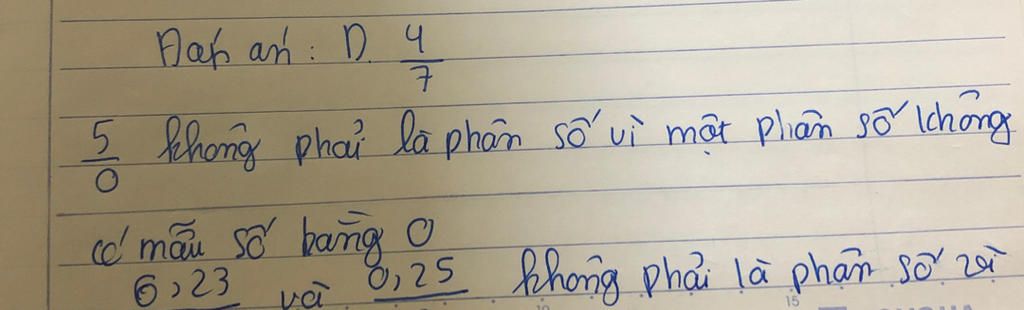 Đáp án: D. 4/7
5/0 không phải là phân số vì một phân số không
có mẫu số bằng 0
6,23 và 0,25 không phải là phân số vì